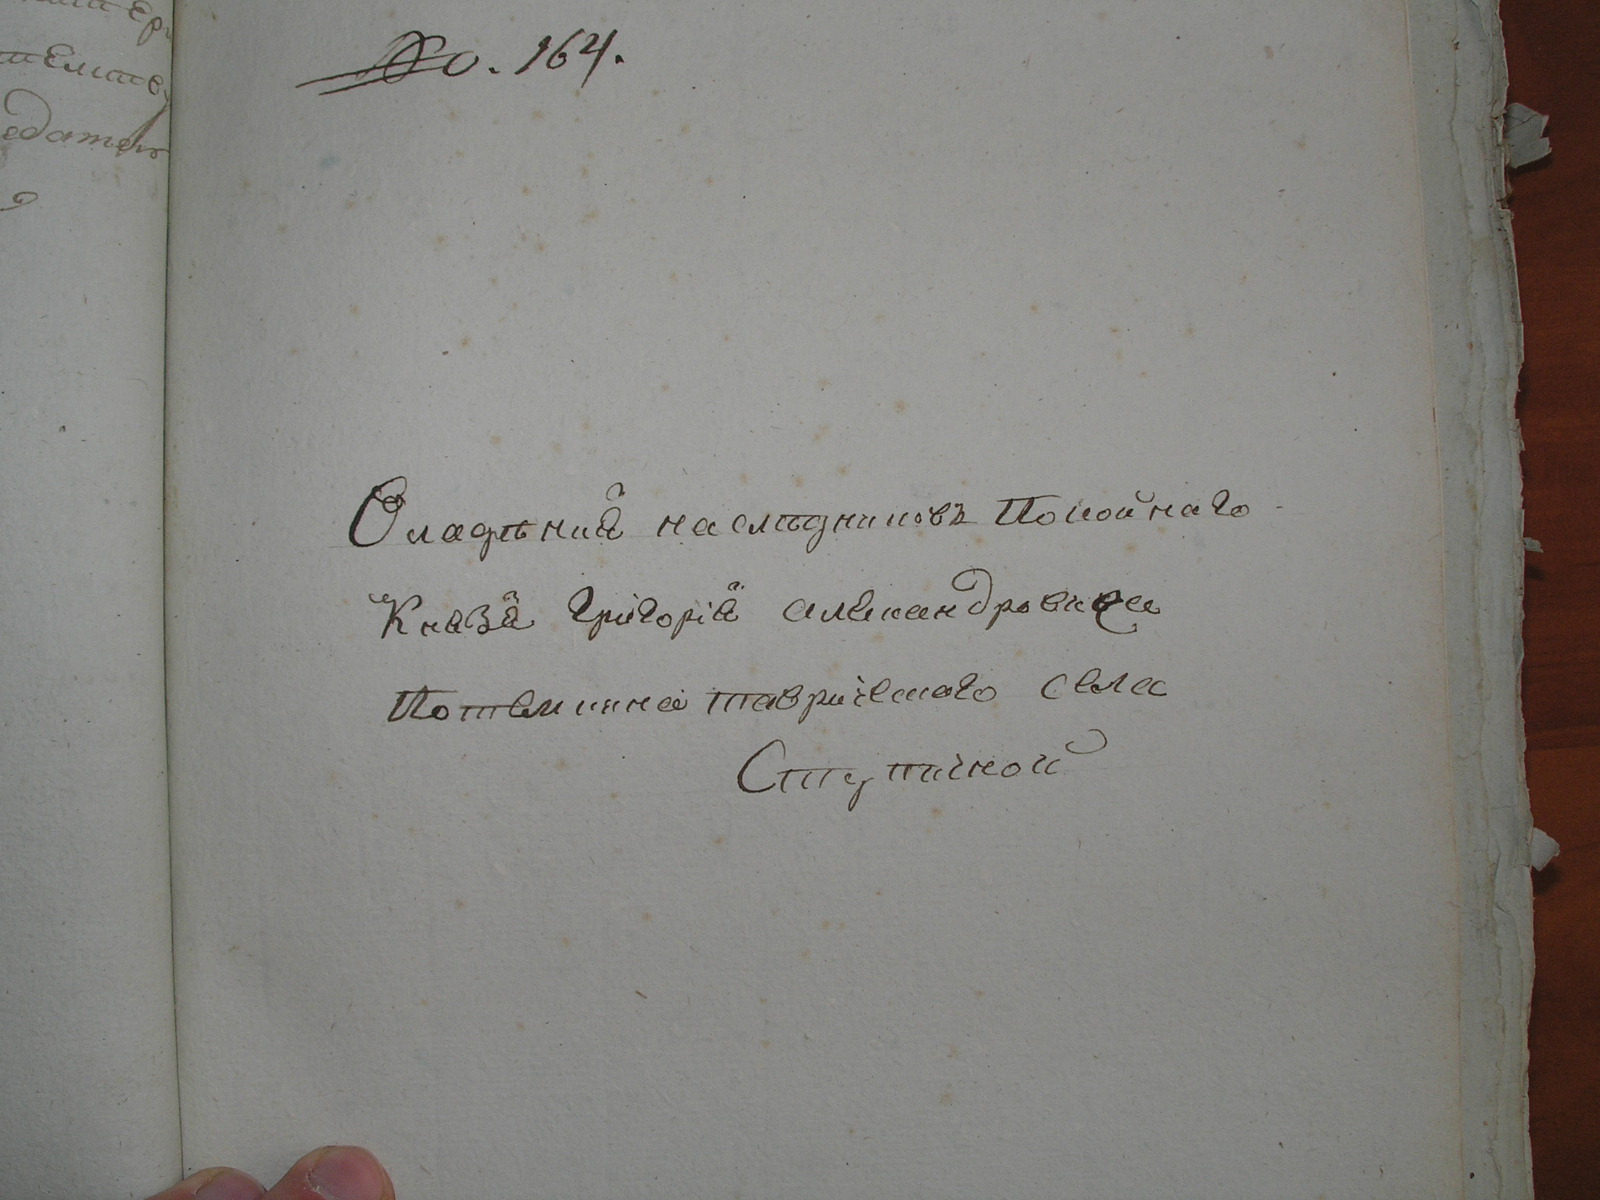 едател
No. 164.
Овладѣнія наслѣдниковъ Покойнаго
Князя Григорія Александровича
Потемкина таврическаго села
Ступиной